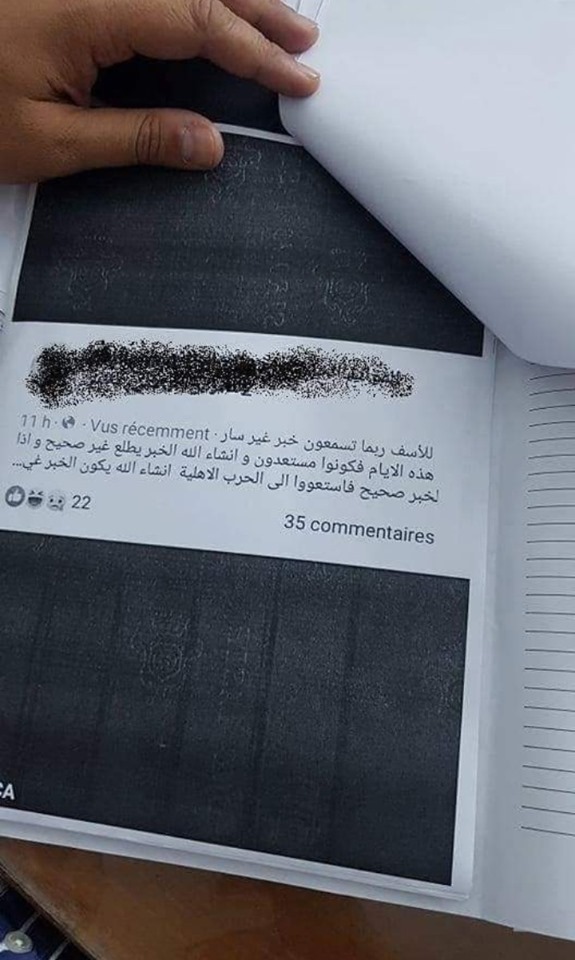 11 h · Vus récemment ·
للأسف ربما تسمعون خبر غير سار
هذه الايام فكونوا مستعدون و انشاء الله الخبر يطلع غير صحيح و اذا
لخبر صحيح فاستعووا الى الحرب الاهلية انشاء الله يكون الخبر غي...
22
35 commentaires
CA